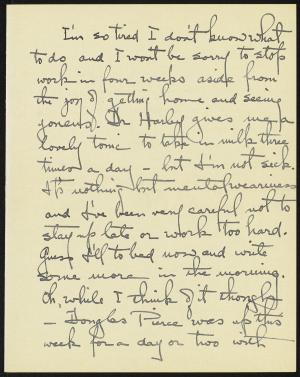 I'm so tired I don't know what
to do and I won't be sorry to stop
work in four weeks aside from
the joy of getting home and seeing
Dr gives me a
lovely tonic to take in milk three
times a day - but I'm not sick.
It's nothing but mental weariness
and I've been very careful not to
stay up late or work too hard.
Guess I'll to bed now and write
some more in the morning.
Oh, while I think of it though
- Douglas Pierce was up this
week for a day or two with